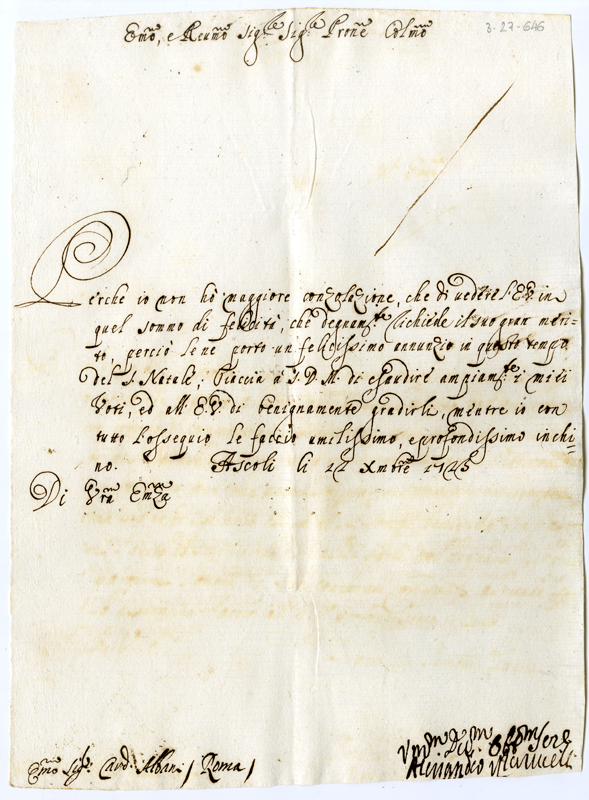 Emo, e Reumo Sigre Sigre Prone Colmo
3-27-646
Perche io non hò maggiore consolazione, che di uedere l'E.V. in
quel sommo di felicità, che degnamte richiede il suo gran meri=
to, perciò le ne porto un felicissimo annunzio in questo tempo
del S. Natale; Piaccia à S. D. M. di esaudire ampiamte i miei
Voti, ed all' E.V. di benignamente gradirli, mentre io con
tutto l'ossequio le faccio umilissimo, e profondissimo inchi=
no. Ascoli li Xmbre
Di Vra Emza
Emo Sigr. Card. Albani / Roma /
Alessandro